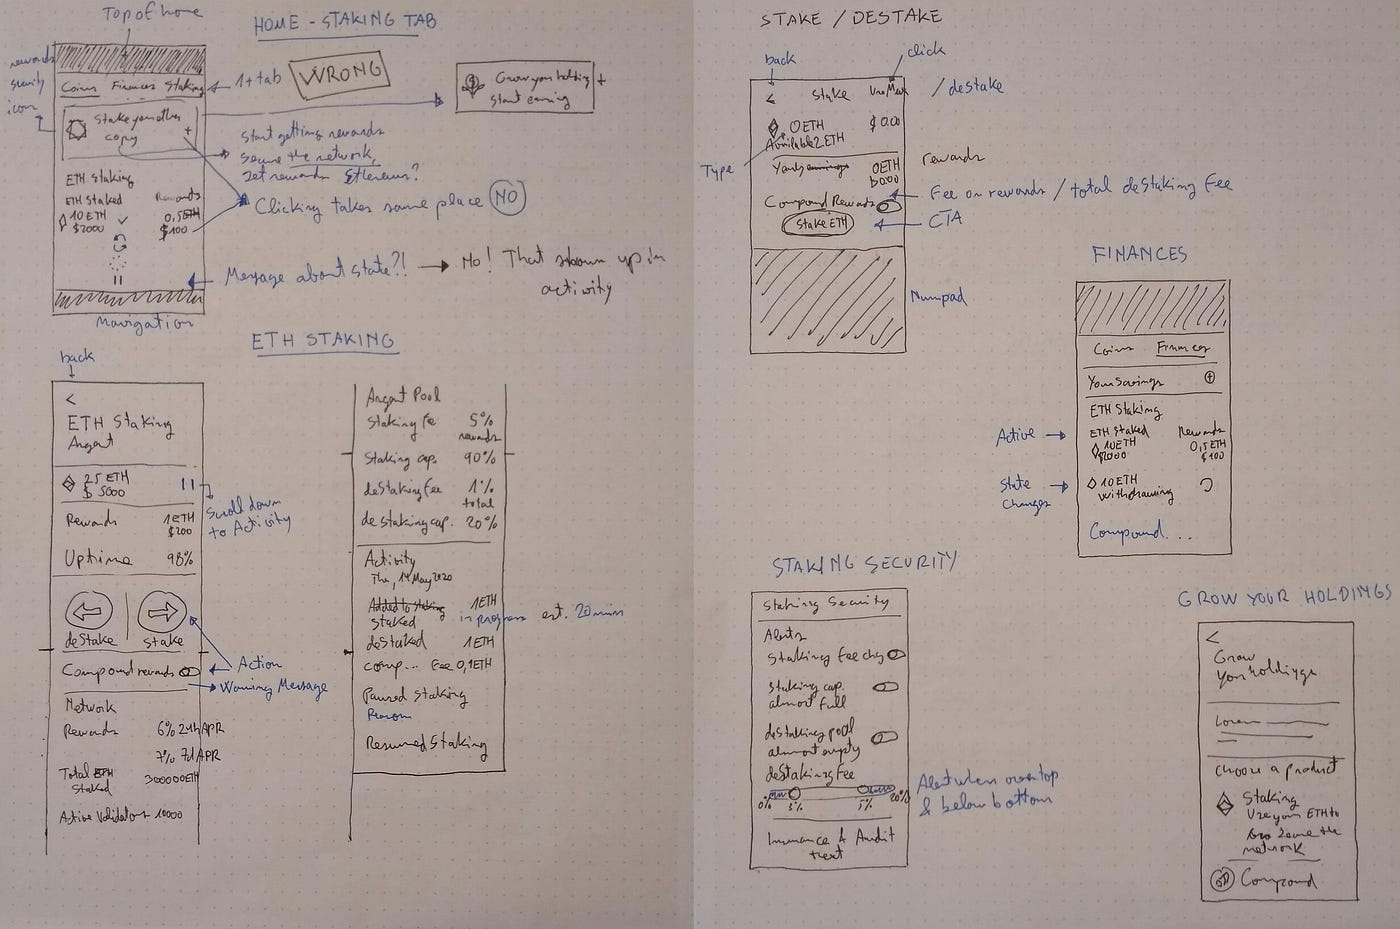 Top of home
HOME - STAKING TAB
rewards
security
icon
1+ tab
WRONG
Coins Finances Staking
Stake your ether
copy
+
Grow your holdings
start earning
+
Start getting rewards
secure the network,
get rewards Ethereum?
ETH Staking
ETH Staked Rewards
10 ETH 0,5 ETH
$2000 $100
Clicking takes same place NO
Message about state?!
No! That shown up in
activity
Navigation
ETH STAKING
back
<
ETH Staking
Argent
25 ETH
$ 5000
Scroll down
to Activity
Rewards 1 ETH
$200
Uptime 98%
deStake stake
Action
Compound rewards
Warning Message
Network
Rewards 6% 24h APR
7% 7d APR
Total ETH 300000 ETH
Staked
Active Validators 10000
Argent Pool
Staking fe 5%
rewards
Staking cap. 90%
deStaking fee 1%
total
deStaking cap. 20%
Activity
Thu, 14 May 2020
Added to staking 1 ETH
staked in progress est. 20 min
deStaked 1 ETH
comp... Fee 0,1 ETH
Paused Staking
Reason
Resumed Staking
STAKE / DESTAKE
back
click
< Stake Use Max
/ deStake
0 ETH $0.00
Available 2 ETH
Type
Yearly earnings 0 ETH
rewards
Compound Rewards
Fee on rewards / total deStaking Fee
Stake ETH
CTA
Numpad
FINANCES
Coins Finances
Your Savings +
ETH Staking
ETH Staked Rewards
Active
10 ETH 0,5 ETH
$2000 $100
State
Changes
10 ETH
withdrawing
Compound...
STAKING SECURITY
Staking Security
Alerts
Staking fee chg
Staking cap.
almost full
deStaking pool
almost empty
deStaking Fee
0% 3% 5% 20%
Alert when over top
& below bottom
Insurance & Audit
text
GROW YOUR HOLDINGS
<
Grow
your holdings
Lorem
Choose a product
Staking
Use your ETH to
secure the
network
Compound